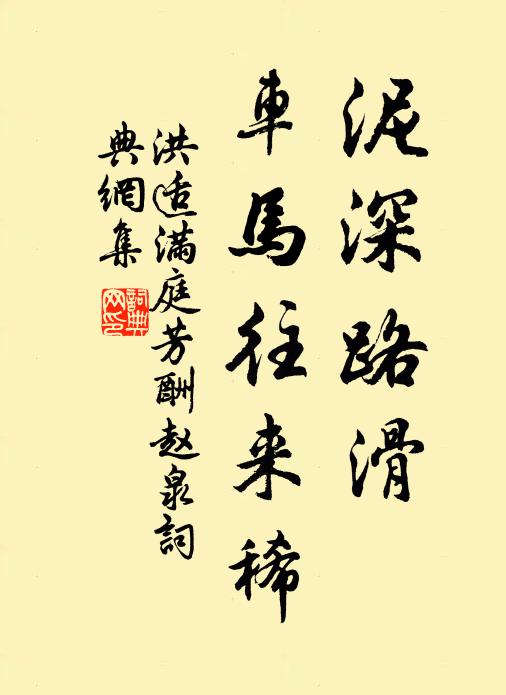 泥深路滑
車馬往来稀
洪适滿庭芳酬赵泉詞
典網集
詞典網印